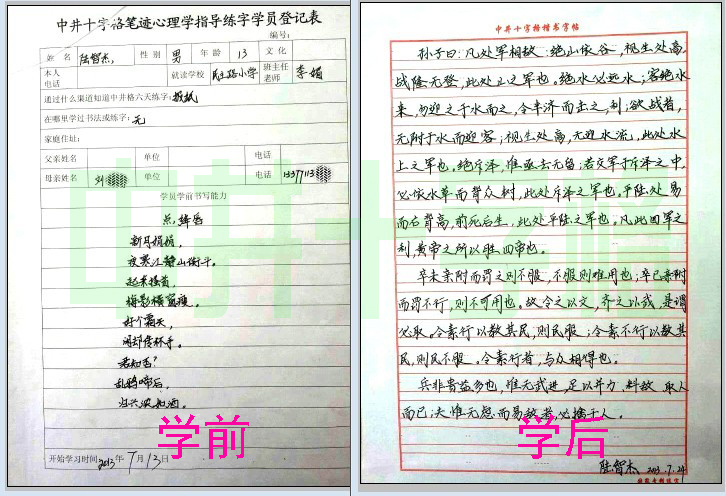 中井十字格笔迹心理学指导练字学员登记表
编号:
姓名 陆智杰 性别 男 年龄 13 文化
本人电话 就读学校 民主路小学 班主任老师 李娟
通过什么渠道知道中井格六天练字: 报纸
在哪里学过书法或练字: 无
家庭住址:
父亲姓名 单位 电话
母亲姓名 刘 单位 电话 1337113
学员学前书写能力
点绛唇
新月娟娟,
夜寒江静山衔斗。
起来搔首,
梅影横窗瘦。
好个霜天,
闲却传杯手。
君知否?
乱鸦啼后,
归兴浓如酒。
学前
开始学习时间 2013年7月13日
中井十字格楷书字帖
孙子曰:凡处军相敌:绝山依谷,视生处高,
战隆无登,此处山之军也。绝水必远水;客绝水
来,勿迎之于水而之,令半济而击之,利;欲战者,
无附于水而迎客;视生处高,无迎水流,此处水
上之军也。绝斥泽,惟亟去无留;若交军于斥泽之中,
必依水草而背众树,此处斥泽之军也。平陆处易
而右背高,前死后生,此处平陆之军也。凡此四军之
利,黄帝之所以胜四帝也。
卒未亲附而罚之则不服,不服则难用也;卒已亲附
而罚不行,则不可用也。故令之以文,齐之以武,是谓
必取。令素行以教其民,则民服;令素不行以教其
民,则民不服。令素行者,与众相得也。
兵非贵益多也,惟无武进,足以并力、料敌、取人
而已;夫惟无虑而易敌者,必擒于人。
学后
陆智杰 2013.7.24